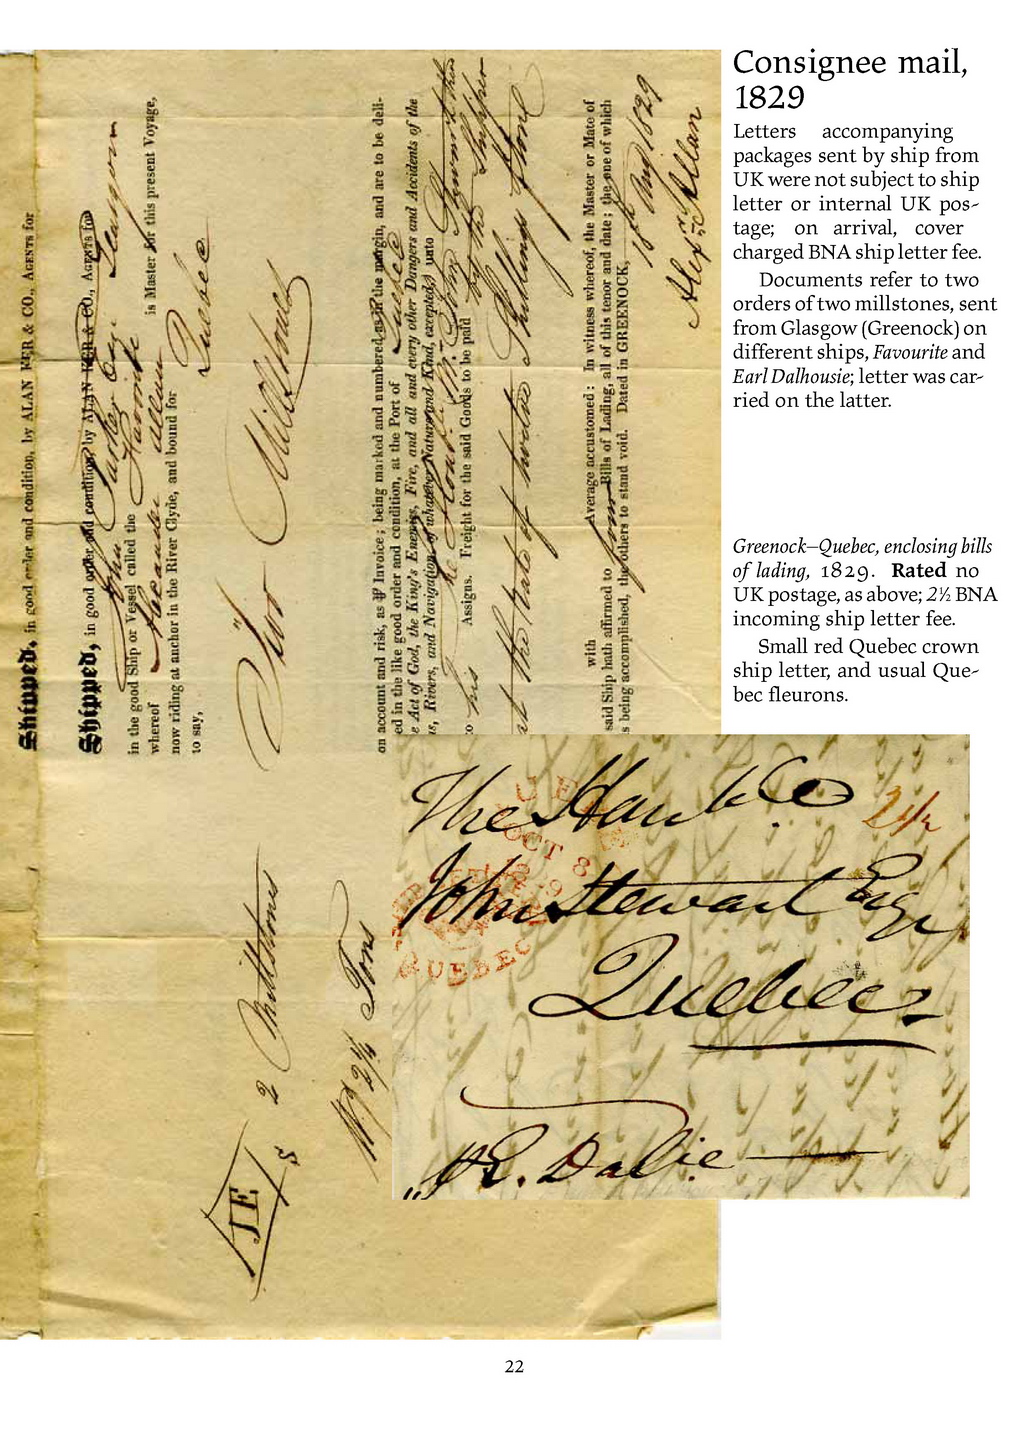 Consignee mail,
1829
Letters accompanying
packages sent by ship from
UK were not subject to ship
letter or internal UK pos-
tage; on arrival, cover
charged BNA ship letter fee.
Documents refer to two
orders of two millstones, sent
from Glasgow (Greenock) on
different ships, Favourite and
Earl Dalhousie; letter was car-
ried on the latter.
Greenock–Quebec, enclosing bills
of lading, 1829. Rated no
UK postage, as above; 2½ BNA
incoming ship letter fee.
Small red Quebec crown
ship letter, and usual Que-
bec fleurons.
Shipped, in good order and condition, by ALAN KER & CO., AGENTS for
Shipped, in good order and condition, by ALAN KER & CO., AGENTS for
John
in the good Ship or Vessel called the
whereof Alexander Allan is Master for this present Voyage,
now riding at anchor in the River Clyde, and bound for
Quebec
to say,
Two Millstones
on account and risk, as ℔ Invoice; being marked and numbered as in the margin, and are to be deli-
ed in the like good order and condition, at the Port of Quebec
e Act of God, the King's Enemies, Fire, and all and every other Dangers and Accidents of the
s, Rivers, and Navigation, of whatever Nature and Kind, excepted, unto
his Assigns. Freight for the said Goods to be paid by the Shipper
at the rate of twelve Shillings
with Average accustomed: In witness whereof, the Master or Mate of
said Ship hath affirmed to four Bills of Lading, all of this tenor and date; the one of which
s being accomplished, the others to stand void. Dated in GREENOCK,
1829
Alexr Allan
JE
2 Millstones
2¼ Tons
The Honble
John Stewart Esqr
Quebec
2½
OCT 8
QUEBEC
E. Dalie
22